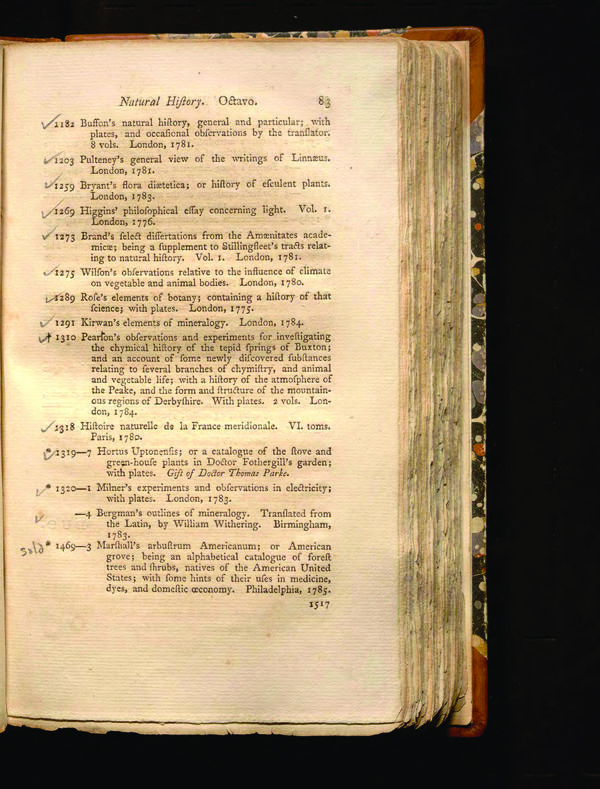 Natural Hiſtory. Octavo. 83
1182 Buffon's natural hiſtory, general and particular; with
plates, and occaſional obſervations by the tranſlator.
8 vols. London, 1781.
1203 Pulteney's general view of the writings of Linnæus.
London, 1781.
1259 Bryant's flora diætetica; or hiſtory of eſculent plants.
London, 1783.
1269 Higgins' philoſophical eſſay concerning light. Vol. 1.
London, 1776.
1273 Brand's ſelect diſſertations from the Amænitates acade-
micæ; being a ſupplement to Stillingfleet's tracts relat-
ing to natural hiſtory. Vol. 1. London, 1781.
1275 Wilſon's obſervations relative to the influence of climate
on vegetable and animal bodies. London, 1780.
1289 Roſe's elements of botany; containing a hiſtory of that
ſcience; with plates. London, 1775.
1291 Kirwan's elements of mineralogy. London, 1784.
1310 Pearſon's obſervations and experiments for inveſtigating
the chymical hiſtory of the tepid ſprings of Buxton;
and an account of ſome newly diſcovered ſubſtances
relating to ſeveral branches of chymiſtry, and animal
and vegetable life; with a hiſtory of the atmoſphere of
the Peake, and the form and ſtructure of the mountain-
ous regions of Derbyſhire. With plates. 2 vols. Lon-
don, 1784.
1318 Hiſtoire naturelle de la France meridionale. VI. toms.
Paris, 1780.
*1319—7 Hortus Uptonenſis; or a catalogue of the ſtove and
green-houſe plants in Doctor Fothergill's garden;
with plates. Gift of Doctor Thomas Parke.
* 1320—1 Milner's experiments and obſervations in electricity;
with plates. London, 1783.
—4 Bergman's outlines of mineralogy. Tranſlated from
the Latin, by William Withering. Birmingham,
1783.
Sold * 1469—3 Marſhall's arbuſtrum Americanum; or American
grove; being an alphabetical catalogue of foreſt
trees and ſhrubs, natives of the American United
States; with ſome hints of their uſes in medicine,
dyes, and domeſtic œconomy. Philadelphia, 1785.
1517